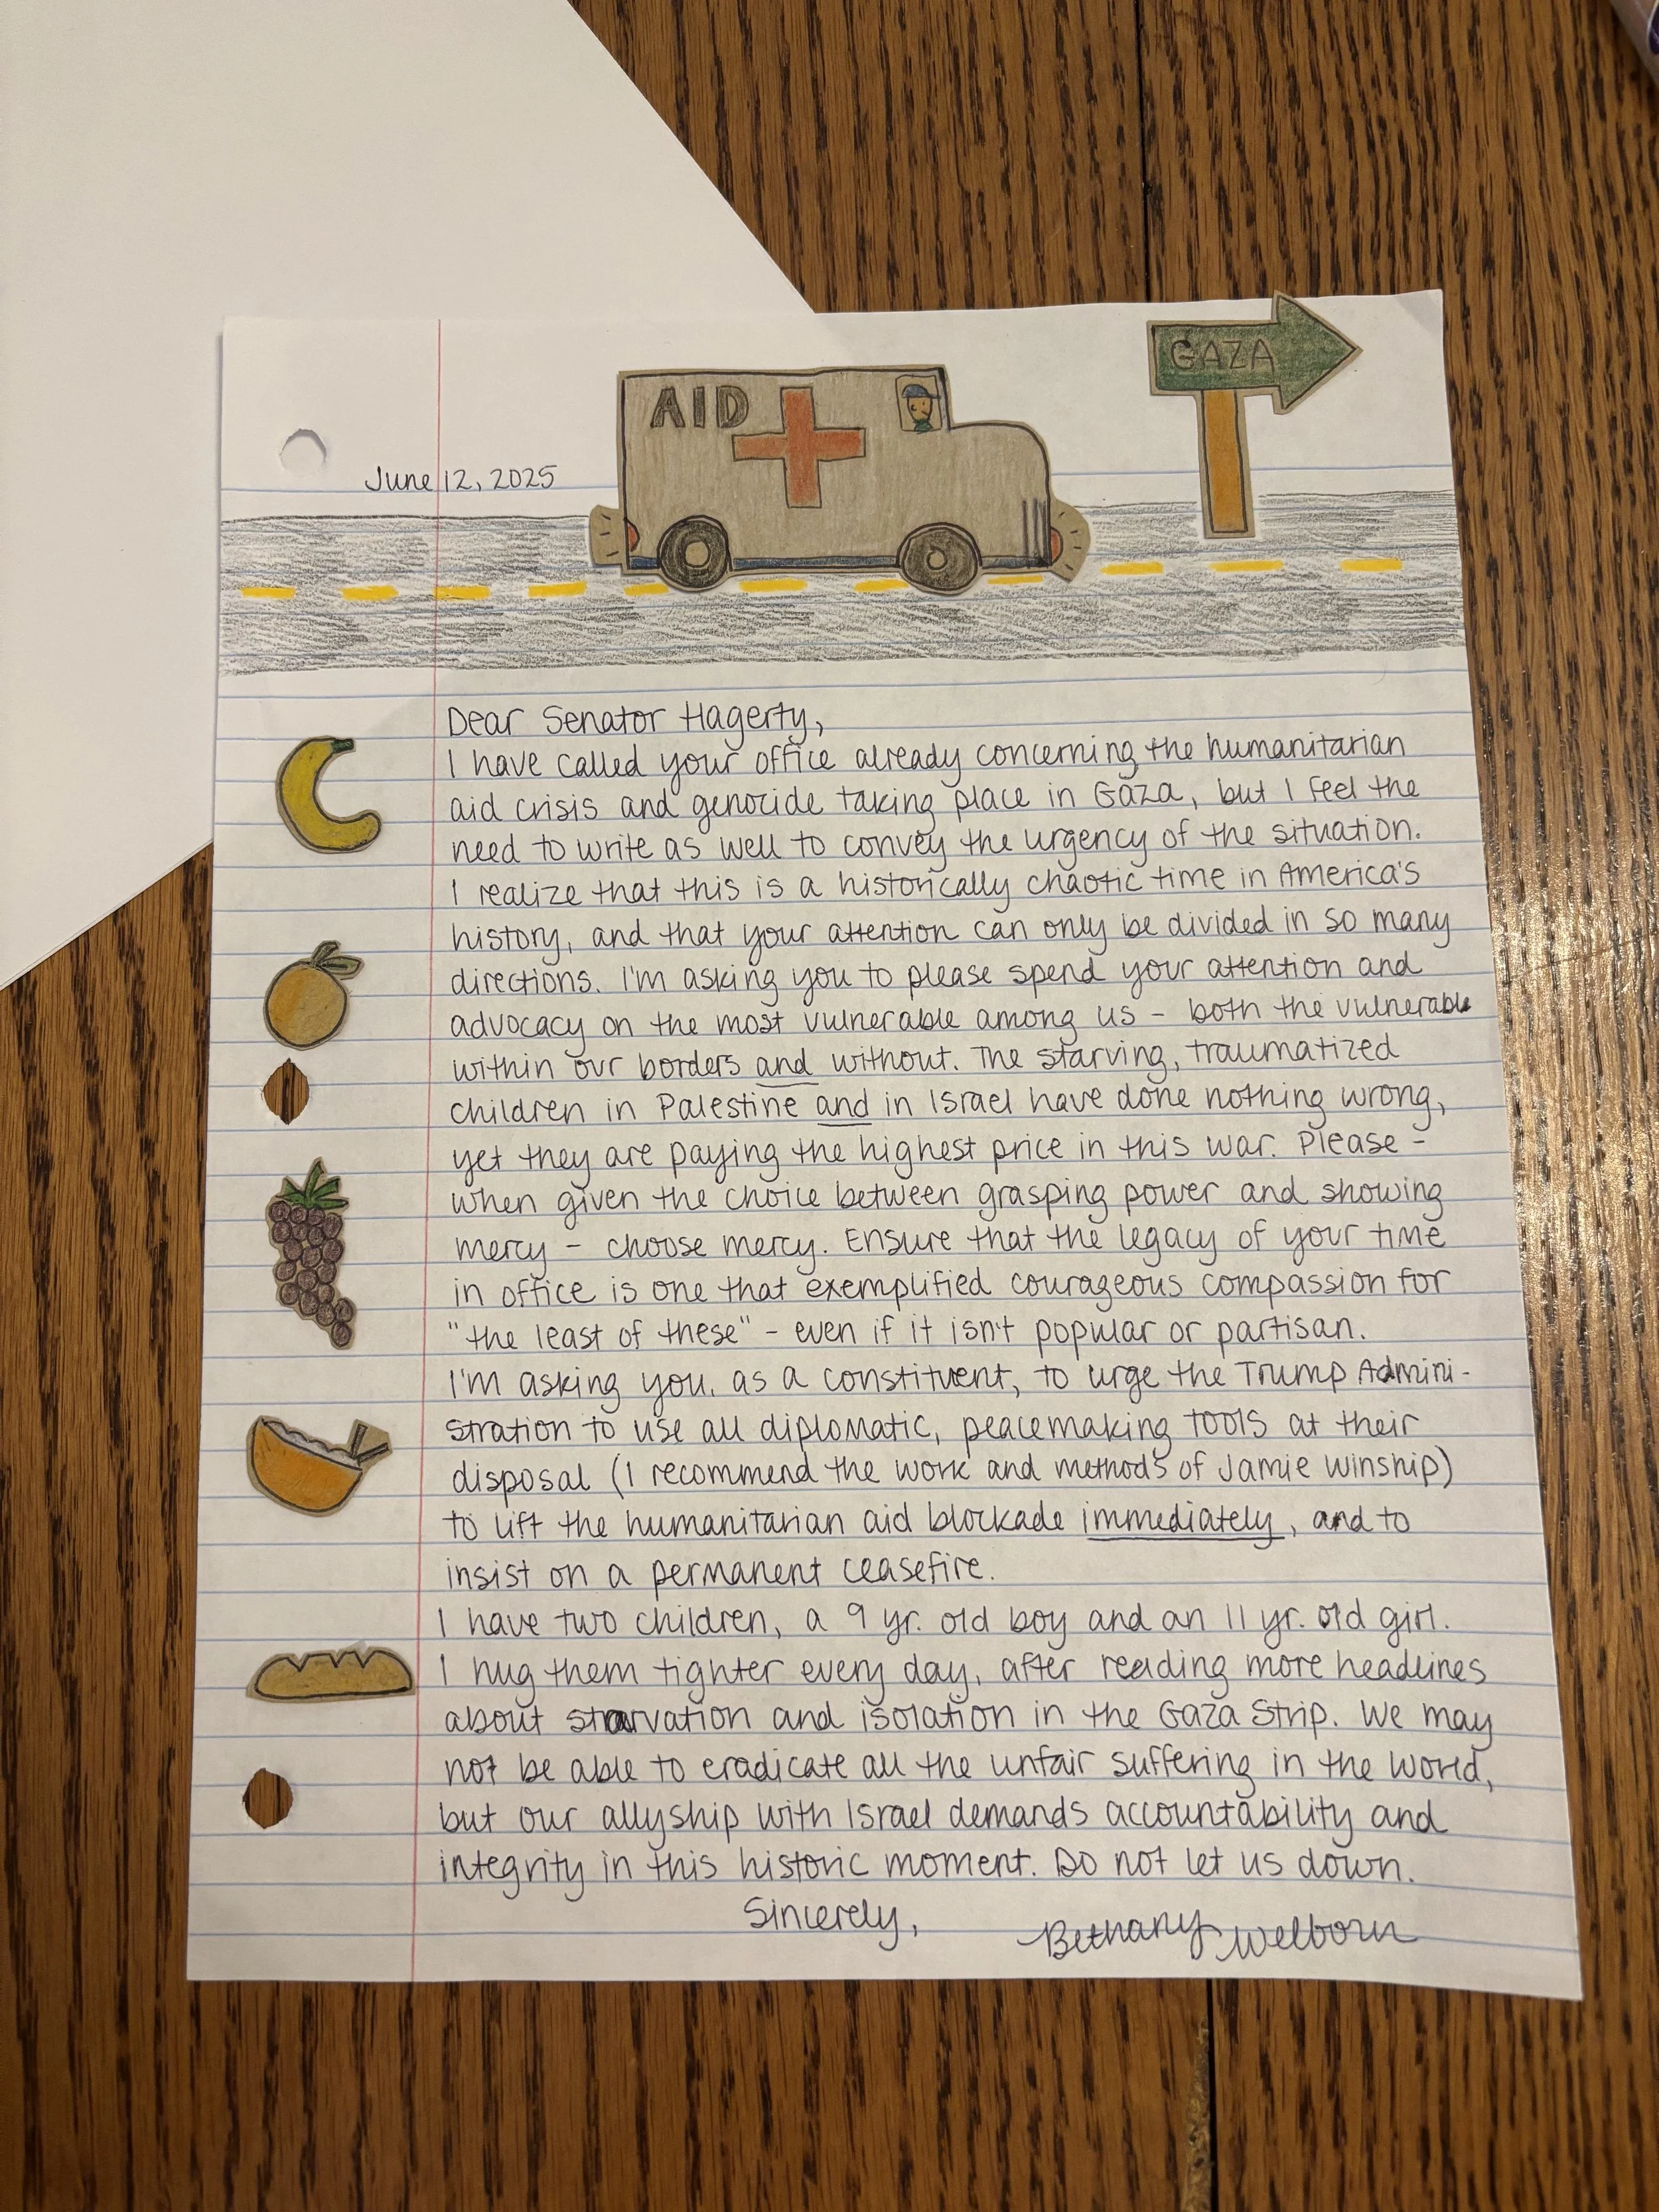 GAZA
AID
June 12, 2025
Dear Senator Hagerty,
I have called your office already concerning the humanitarian
aid crisis and genocide taking place in Gaza, but I feel the
need to write as well to convey the urgency of the situation.
I realize that this is a historically chaotic time in America's
history, and that your attention can only be divided in so many
directions. I'm asking you to please spend your attention and
advocacy on the most vulnerable among us - both the vulnerable
within our borders and without. The starving, traumatized
children in Palestine and in Israel have done nothing wrong,
yet they are paying the highest price in this war. Please -
when given the choice between grasping power and showing
mercy - choose mercy. Ensure that the legacy of your time
in office is one that exemplified courageous compassion for
"the least of these" - even if it isn't popular or partisan.
I'm asking you, as a constituent, to urge the Trump Admini-
stration to use all diplomatic, peacemaking tools at their
disposal (I recommend the work and methods of Jamie Winship)
to lift the humanitarian aid blockade immediately, and to
insist on a permanent ceasefire.
I have two children, a 9 yr. old boy and an 11 yr. old girl.
I hug them tighter every day, after reading more headlines
about starvation and isolation in the Gaza Strip. We may
not be able to eradicate all the unfair suffering in the world,
but our allyship with Israel demands accountability and
integrity in this historic moment. Do not let us down.
Sincerely,
Bethany Welborn